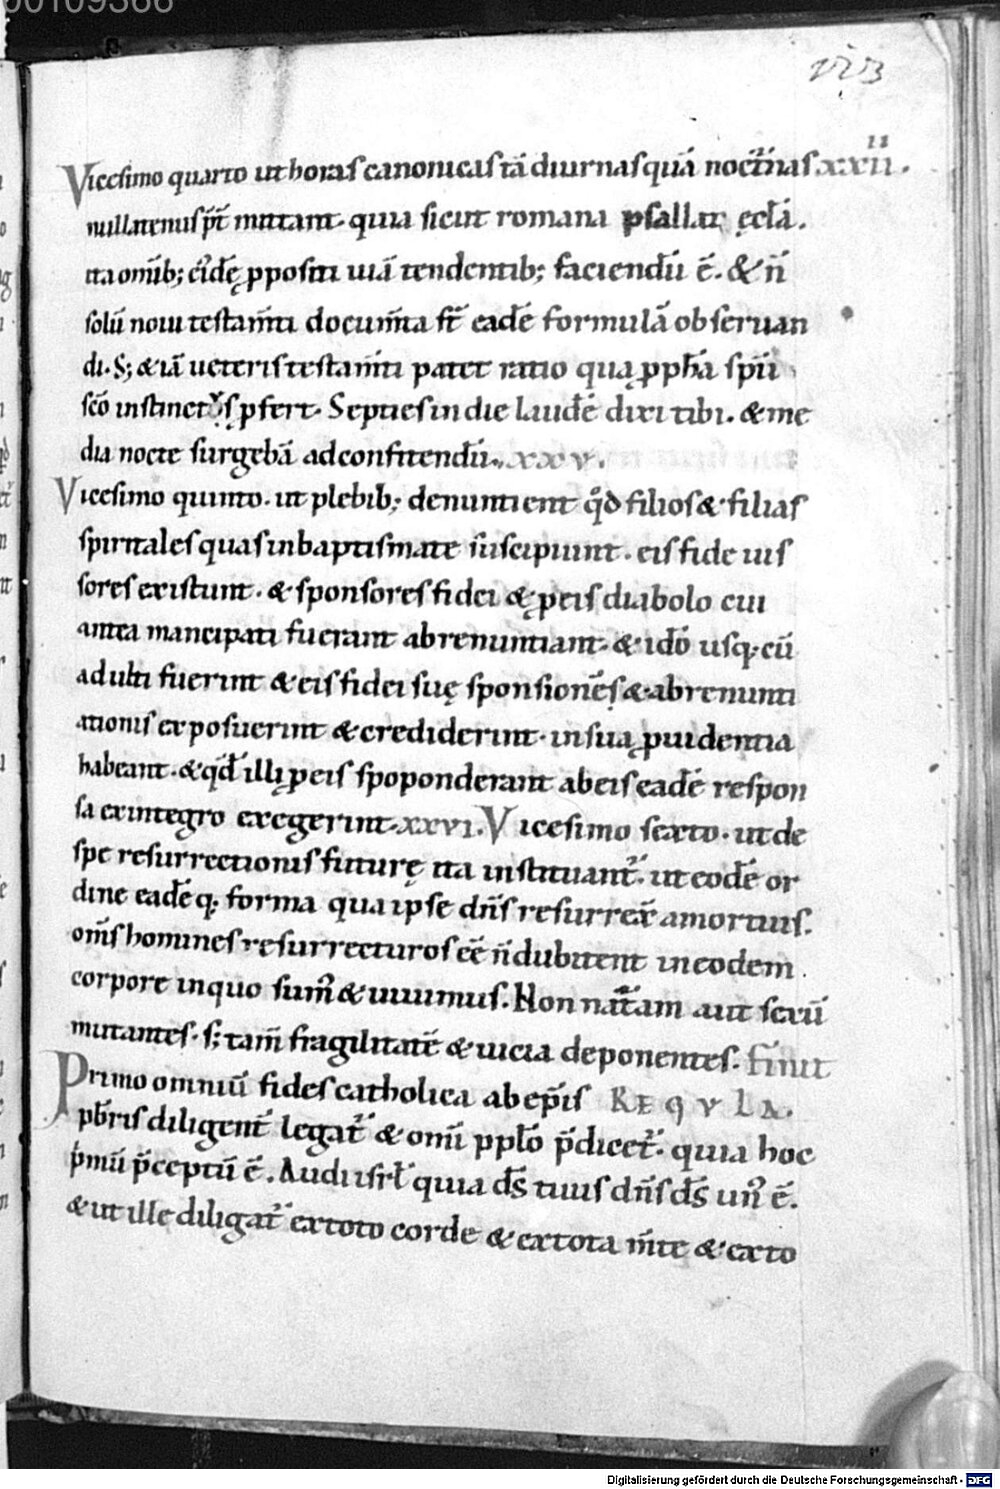 00109366
Vicesimo quarto ut horas canonicas tā diurnas quā noct̄nas xxiiii.
nullatenus p̄t mutant. quia sicut romana psallat ęcl̄a.
ita omīb; ei'dē ꝓpositi uiā tendentib; faciendū ē. & n̄
solū noui testam̄ti docum̄ta s̄t eadē formulā obseruan
di. S; & iā ueteris testam̄ti patet ratio qua ꝓph̄a sp̄u
sc̄o instinctus ꝓfert. Septies in die laudē dixi tibi. & me
dia nocte surgebā ad confitendū. xxv.
Vicesimo quinto. ut plebib; denuntient qd̄ filios & filias
spiritales quas in baptismate suscipiunt. eis fide ius
sores existunt. & sponsores fidei & ꝓ eis diabolo cui
antea mancipati fuerant abrenuntiant. & idō usq; cū
adulti fuerint & eis fidei suę sponsionēs & abrenunti
ationis exposuerint & crediderint. in sua ꝓuidentia
habeant. & qd̄ illi ꝓ eis spoponderant ab eis eadē respon
sa ex integro exegerint. xxvi. Vicesimo sexto. ut de
spe resurrectionis futurę ita instituant᷑. ut eodē or
dine eadēq; forma qua ipse dn̄s resurrex̄ a mortuis.
om̄s homines resurrecturos eē n̄ dubitent in eodem
corpore in quo sum᷑ & uiuimus. Non nat̄am aut sexū
mutantes. s; tam̄ fragilitatē & uicia deponentes. finit
Primo omniū fides catholica ab ep̄is REGVLA.
pb̄ris diligent̄ legat᷑ & omī ppl̄o p̄dicet᷑. quia hoc
p̄mū p̄ceptū ē. Audi isrl̄ quia ds̄ tuus dn̄s ds̄ un᷑ ē.
& ut ille diligat᷑ ex toto corde & ex tota m̄te & ex to
Digitalisierung gefördert durch die Deutsche Forschungsgemeinschaft - DFG